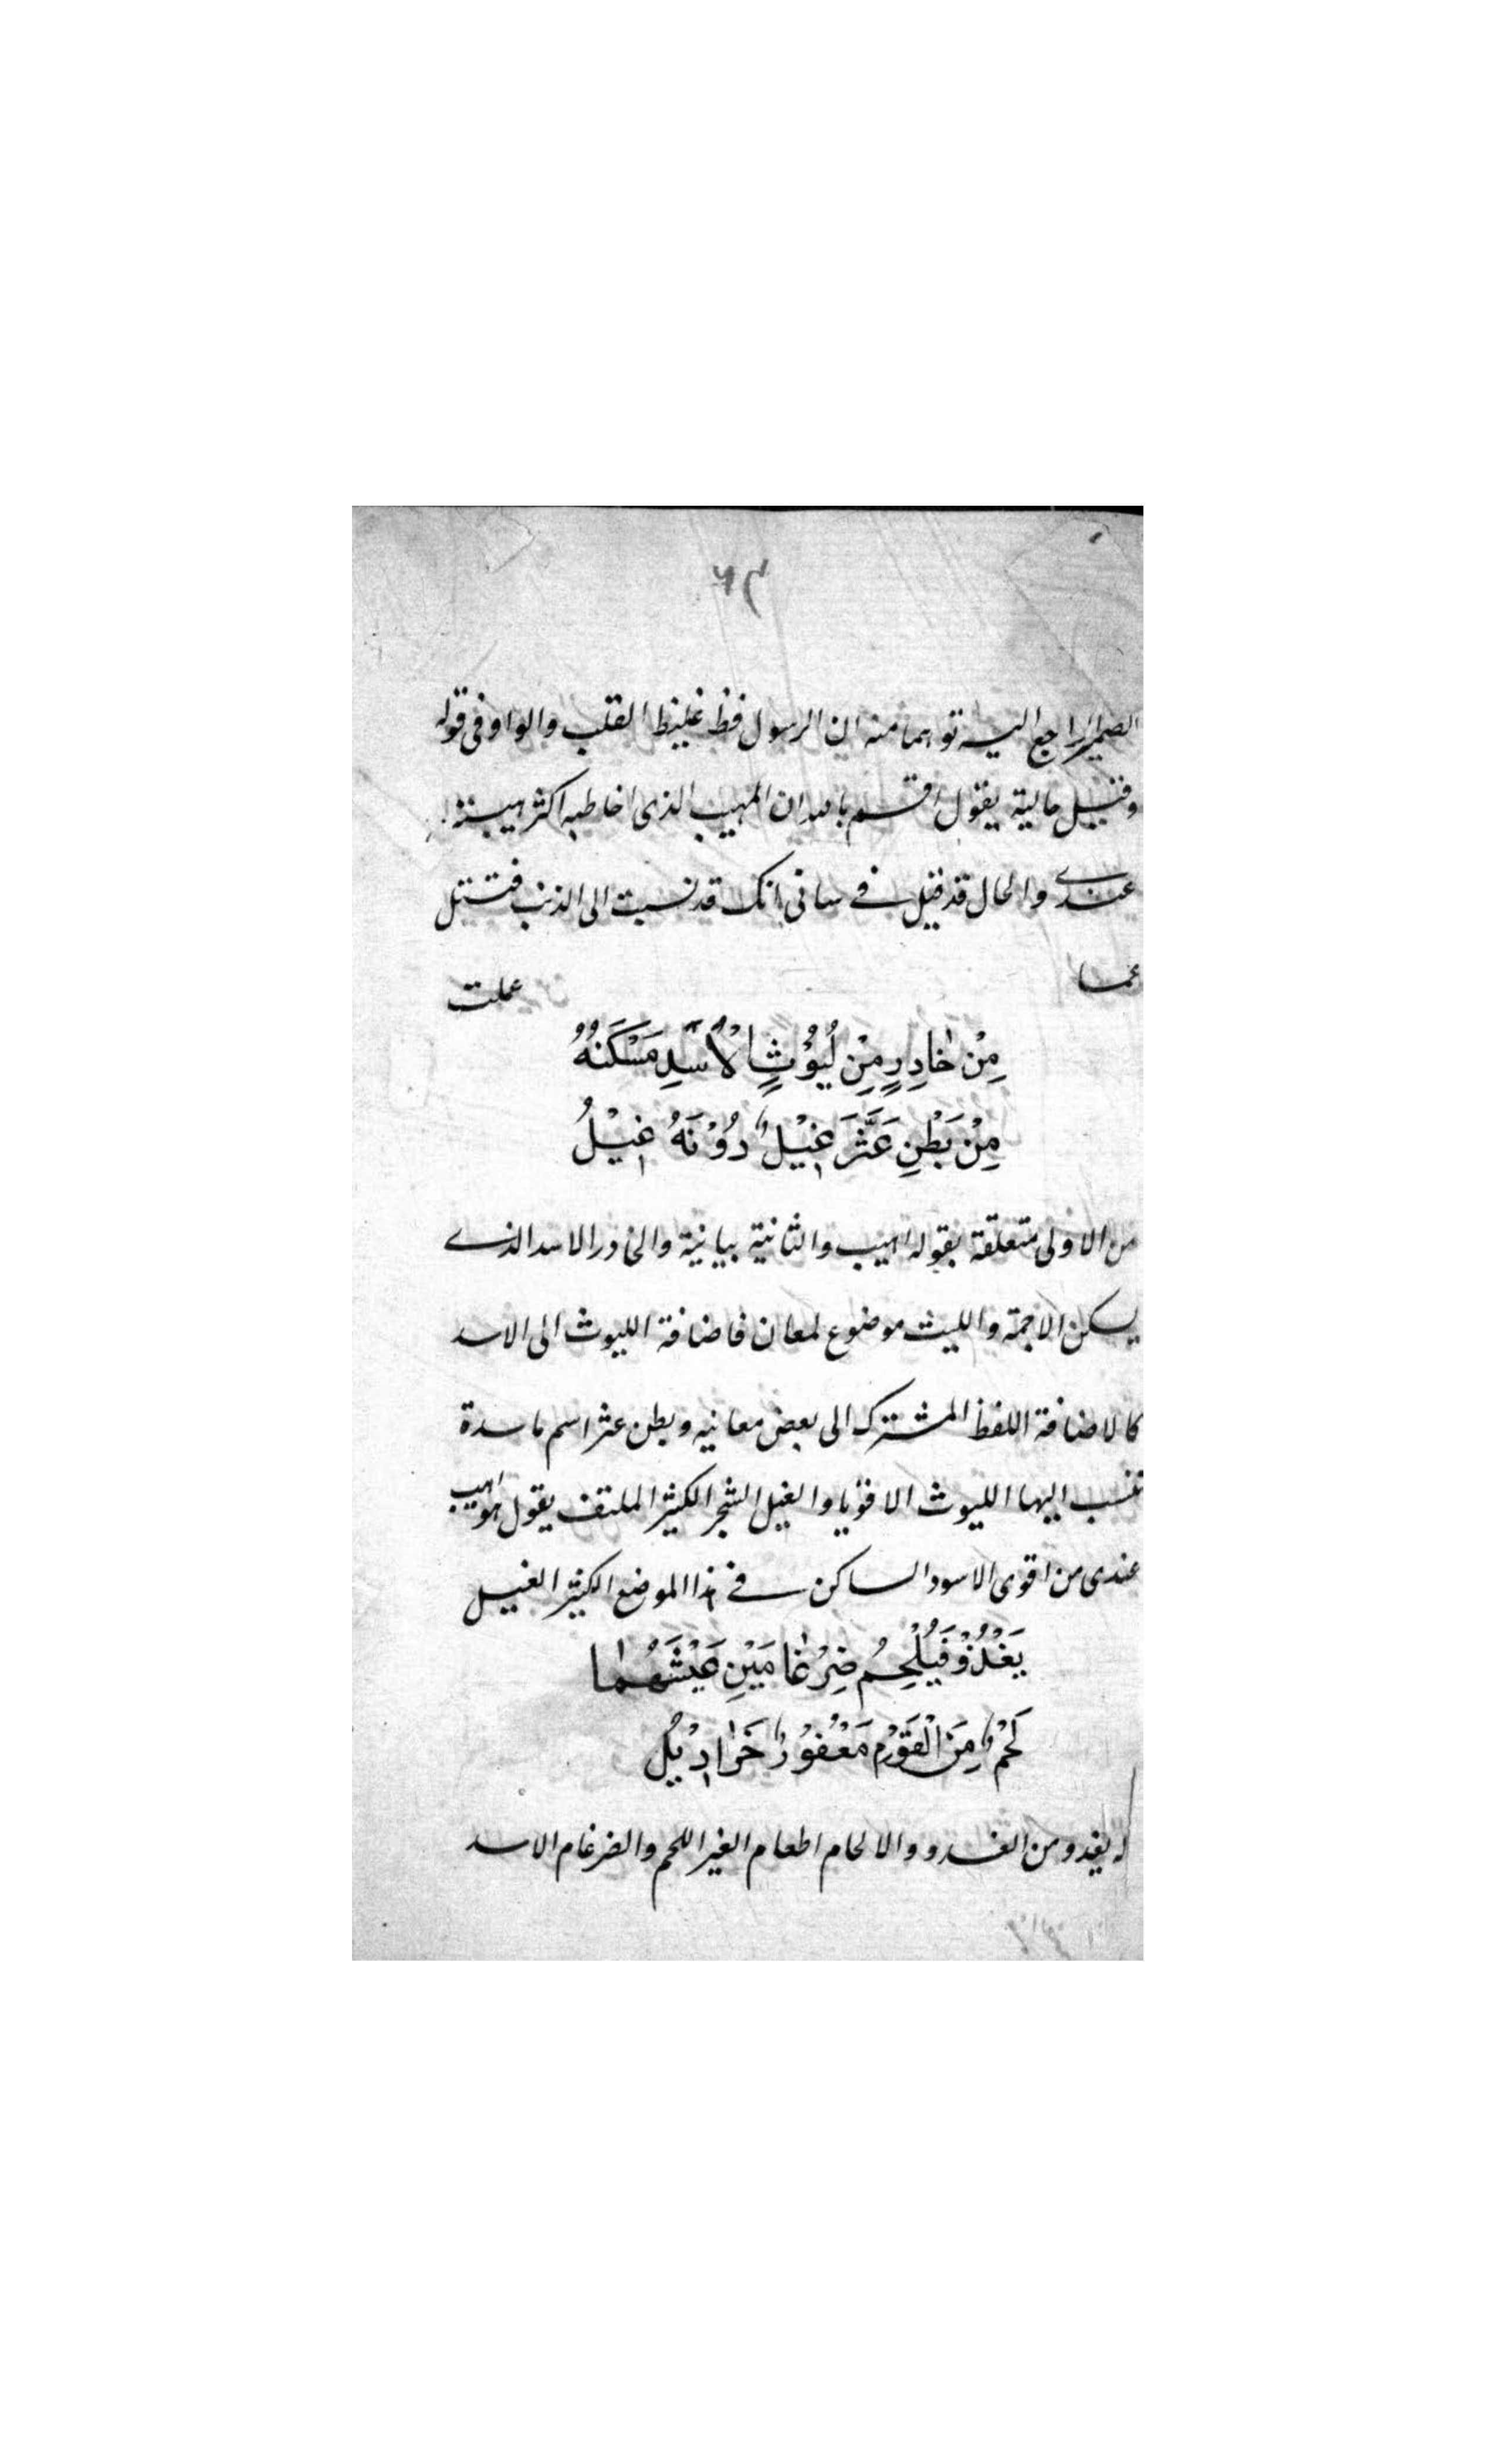 الضمير الراجع اليه توهما منه ان الرسول فظ غليظ القلب والواو فى قوله
وقيل حالية يقول اقسم بالله ان المهيب الذى اخاطبه اكثر هيبة
عندى والحال قد قيل فى شانى انك قد نسبت الى الذنب فتسئل
عما عملت
مِنْ خَادِرٍ مِنْ لُيُوْثِ الْأُسْدِ مَسْكَنُهُ
مِنْ بَطْنِ عَثَّرَ غِيْلٌ دُوْنَهُ غِيْلُ
من الاولى متعلقة بقوله اهيب والثانية بيانية والخادر الاسد الذى
يسكن الاجمة والليث موضوع لمعان فاضافة الليوث الى الاسد
كالاضافة اللفظ المشترك الى بعض معانيه وبطن عثر اسم ماسدة
تنسب اليها الليوث الاقويا والغيل الشجر الكثير الملتف يقول هو اهيب
عندى من اقوى الاسود الساكن فى هذا الموضع الكثير الغيل
يَغْدُوْ فَيُلْحِمُ ضِرْغَامَيْنِ عَيْشَهُمَا
لَحْمٌ مِنَ الْقَوْمِ مَعْفُوْرٌ خَرَادِيْلُ
يغدو من الغدو والالحام اطعام الغير اللحم والضرغام الاسد